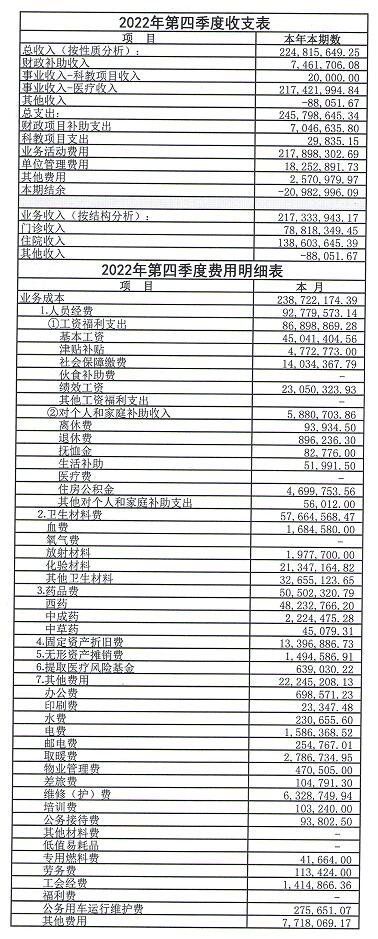 2022年第四季度收支表
项 目 本年本期数
总收入（按性质分析）： 224,815,649.25
财政补助收入 7,461,706.08
事业收入-科教项目收入 20,000.00
事业收入-医疗收入 217,421,994.84
其他收入 -88,051.67
总支出： 245,798,645.34
财政项目补助支出 7,046,635.80
科教项目支出 29,835.15
业务活动费用 217,898,302.69
单位管理费用 18,252,891.73
其他费用 2,570,979.97
本期结余 -20,982,996.09
业务收入（按结构分析）： 217,333,943.17
门诊收入 78,818,349.45
住院收入 138,603,645.39
其他收入 -88,051.67
2022年第四季度费用明细表
项 目 本 月
业务成本 238,722,174.39
1.人员经费 92,779,573.14
①工资福利支出 86,898,869.28
基本工资 45,041,404.56
津贴补贴 4,772,773.00
社会保障缴费 14,034,367.79
伙食补助费 -
绩效工资 23,050,323.93
其他工资福利支出 -
②对个人和家庭补助收入 5,880,703.86
离休费 93,934.50
退休费 896,236.30
抚恤金 82,776.00
生活补助 51,991.50
医疗费 -
住房公积金 4,699,753.56
其他对个人和家庭补助支出 56,012.00
2.卫生材料费 57,664,568.47
血费 1,684,580.00
氧气费 -
放射材料 1,977,700.00
化验材料 21,347,164.82
其他卫生材料 32,655,123.65
3.药品费 50,502,320.79
西药 48,232,766.20
中成药 2,224,475.28
中草药 45,079.31
4.固定资产折旧费 13,396,886.73
5.无形资产摊销费 1,494,586.91
6.提取医疗风险基金 639,030.22
7.其他费用 22,245,208.13
办公费 698,571.23
印刷费 23,347.48
水费 230,655.60
电费 1,586,368.52
邮电费 254,767.01
取暖费 2,786,734.95
物业管理费 470,505.00
差旅费 104,791.30
维修（护）费 6,328,749.94
培训费 103,240.00
公务接待费 93,802.50
其他材料费 -
低值易耗品 -
专用燃料费 41,664.00
劳务费 113,424.00
工会经费 1,414,866.36
福利费 -
公务用车运行维护费 275,651.07
其他费用 7,718,069.17